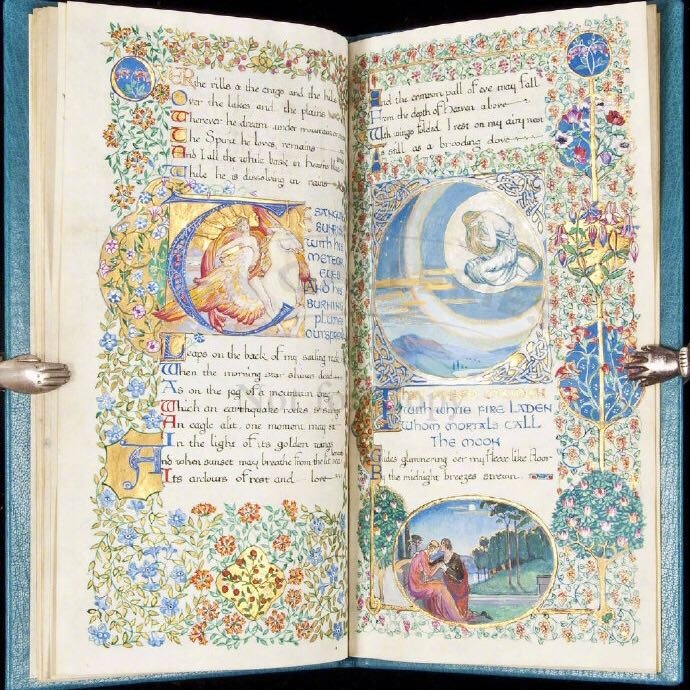 ER the rills & the crags and the hills
Over the lakes and the plains
Wherever he dream under mountain or
The Spirit he loves, remains
And I all the while bask in heavens blue
While he is dissolving in rains
SANGUINE
SUNRISE
WITH HIS
METEOR
EYES
AND HIS
BURNING
PLUMES
OUTSPREAD
Leaps on the back of my sailing rack
When the morning star shines dead
As on the jag of a mountain crag
Which an earthquake rocks & swings
An eagle alit one moment may sit
In the light of its golden wings
And when sunset may breathe from the lit sea beneath
Its ardours of rest and love
And the crimson pall of eve may fall
From the depth of heaven above
With wings folded I rest on my airy nest
As still as a brooding dove
MAIDEN
WITH WHITE FIRE LADEN
WHOM MORTALS CALL
THE MOON
Glides glimmering oer my fleece-like floor
By the midnight breezes strewn